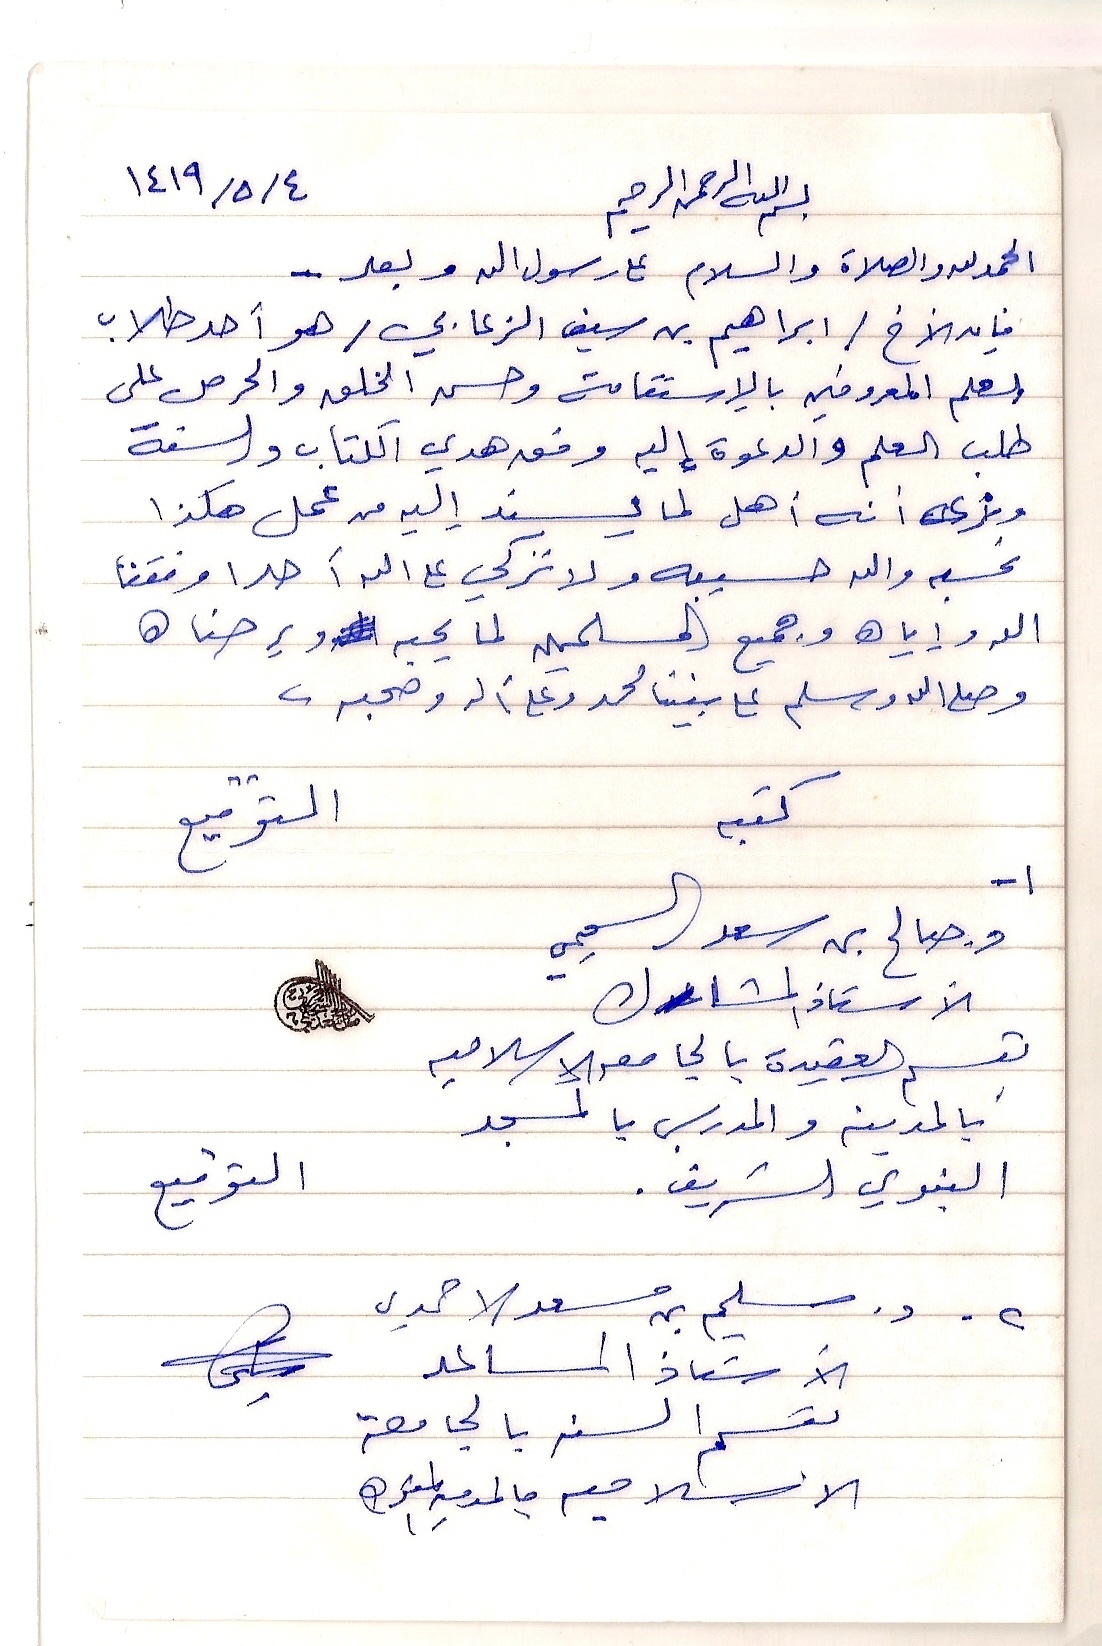 ١٤١٩/٥/٤
بسم الله الرحمن الرحيم
الحمد لله والصلاة والسلام على رسول الله وبعد --
فإن الأخ / ابراهيم بن سيف الزعابي / هو أحد طلاب
العلم المعروفين بالإستقامة وحسن الخلق والحرص على
طلب العلم والدعوة إليه وفق هدي الكتاب والسنة
ونرى أنه أهل لما يسند إليه من عمل هكذا
نحسبه والله حسيبه ولا نزكي على الله أحدا وفقنا
الله وإياه وجميع المسلمين لما يحبه ويرضاه
وصلى الله وسلم على نبينا محمد وعلى آله وصحبه
كتبه التوقيع
١-
د. صالح بن سعد السحيمي
الأستاذ المشارك
بقسم العقيدة بالجامعة الإسلاميه
بالمدينه والمدرس بالمسجد
النبوي الشريف . التوقيع
٢- د. سليم بن مسعد الاحمدي
الأستاذ المساعد
بقسم السنه بالجامعة
الاسلاميه بالمدينه المنوره